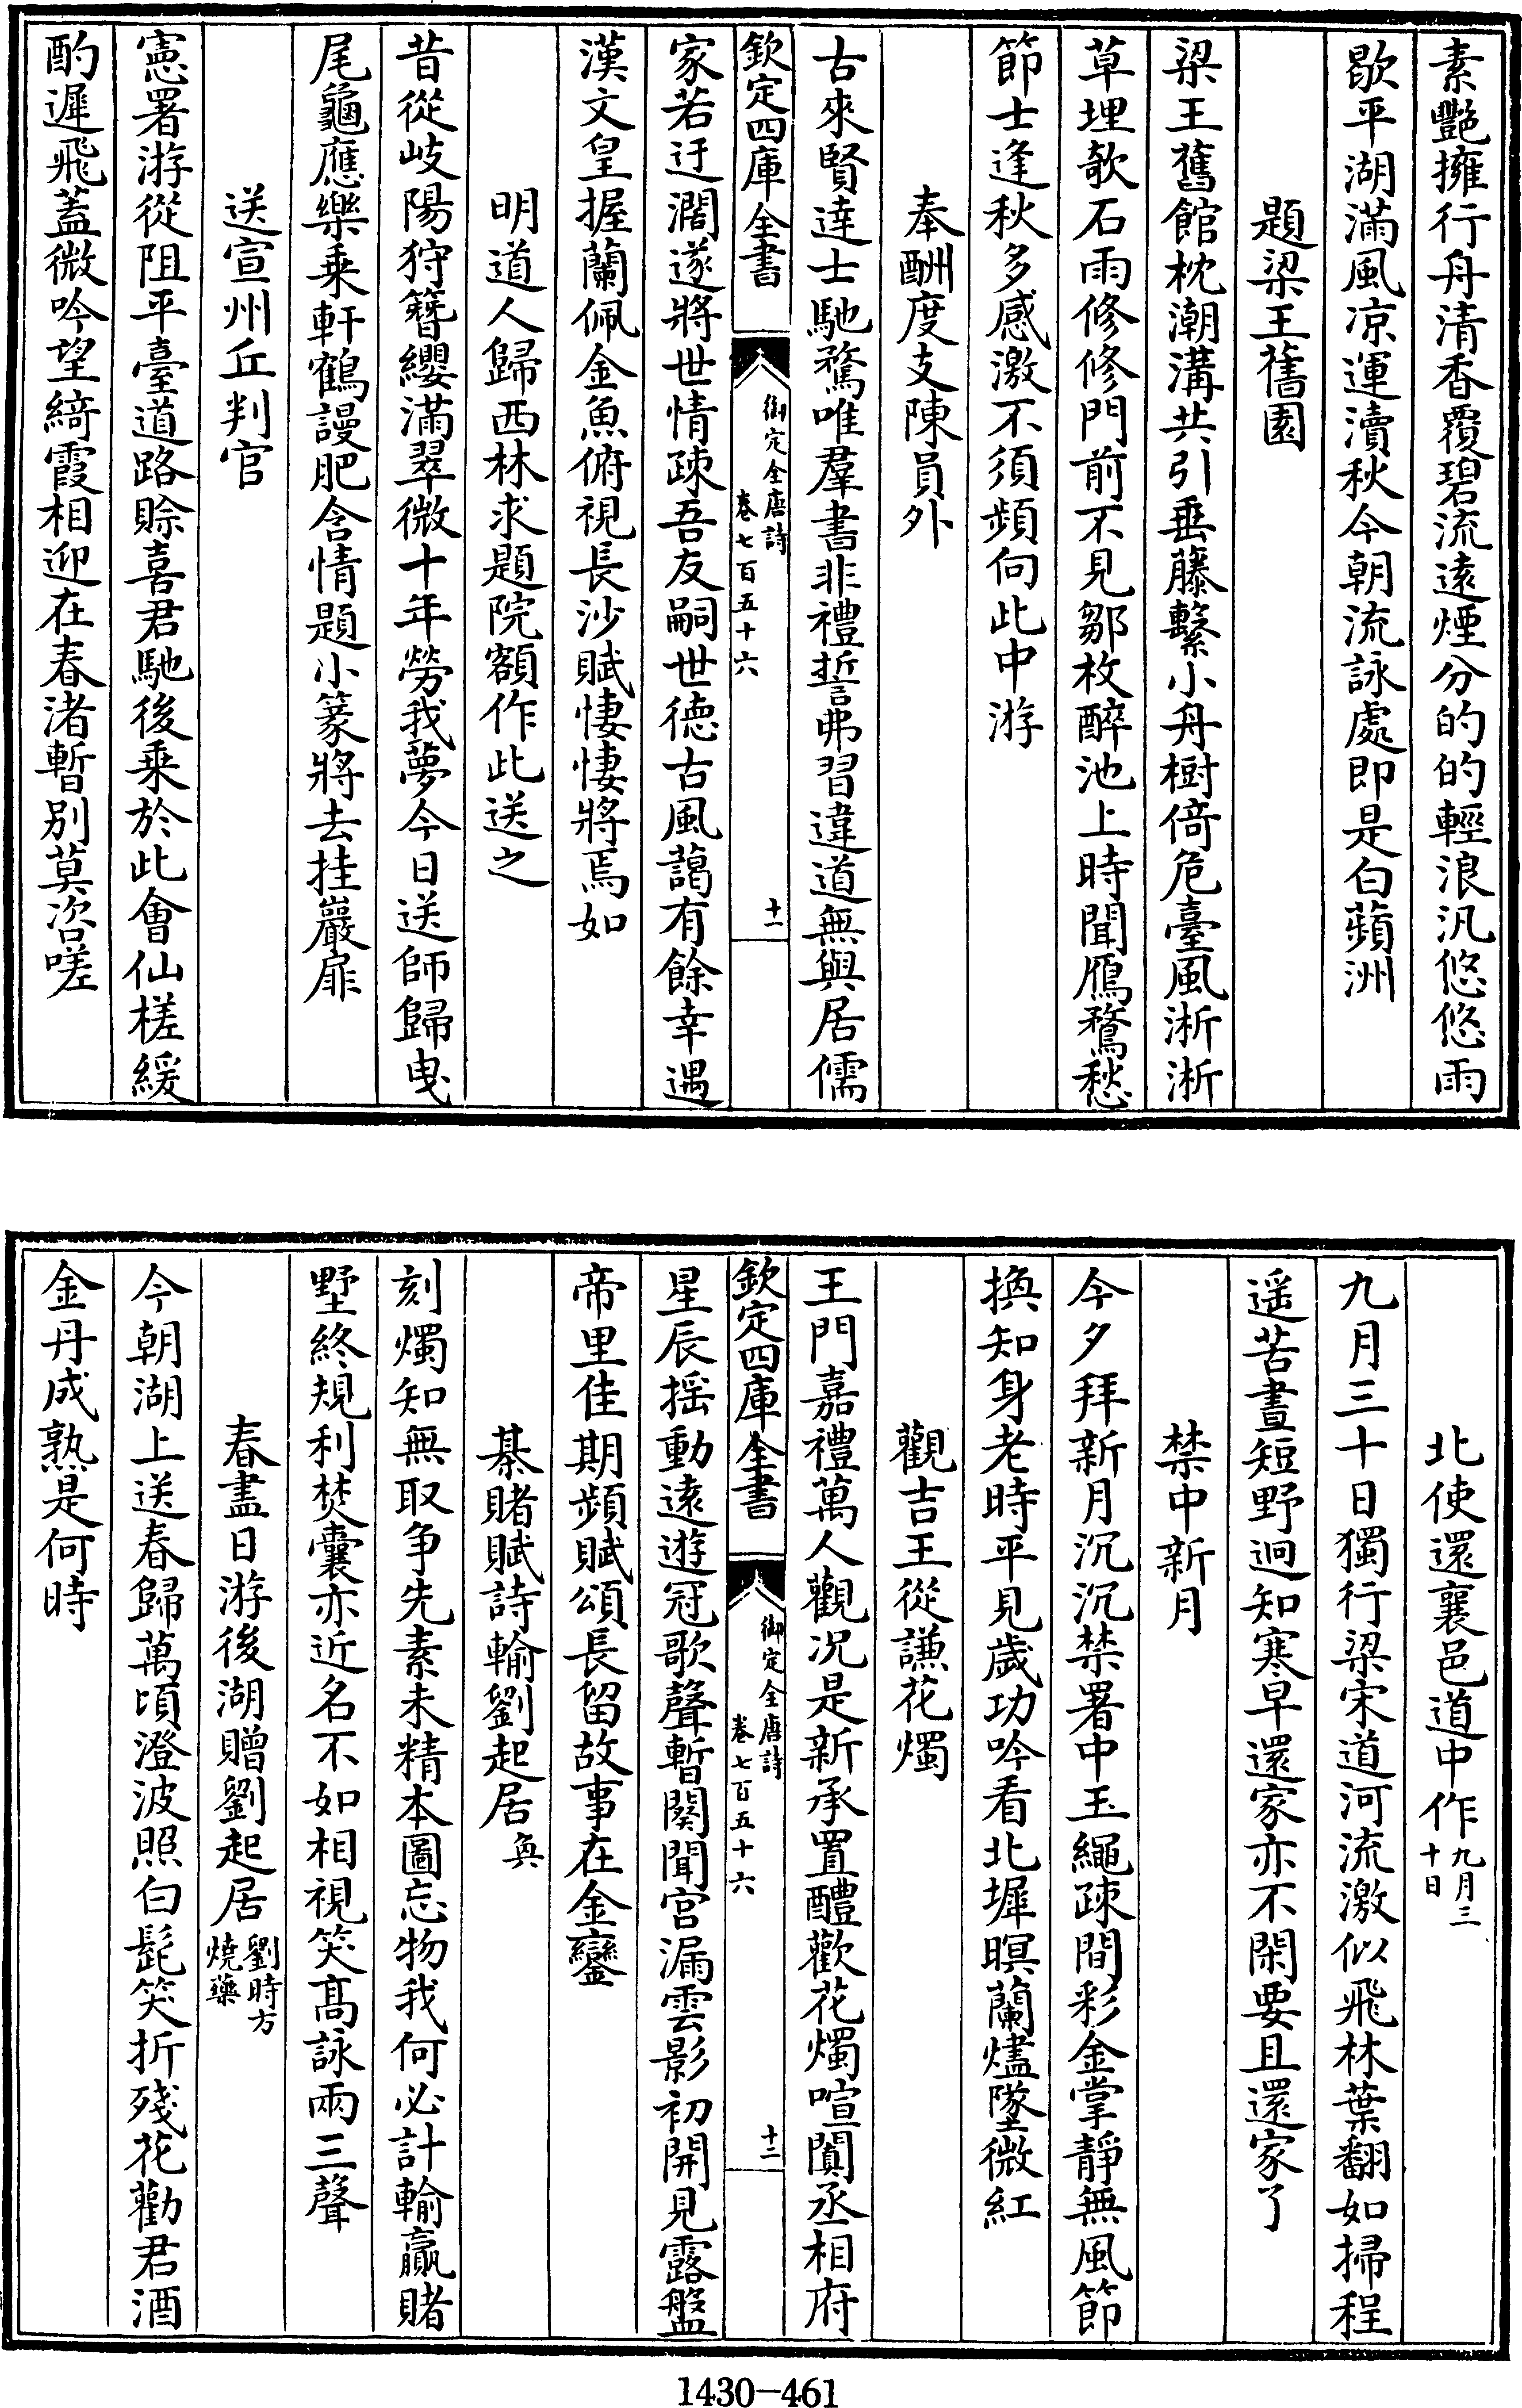 素艷擁行舟清香覆碧流遠煙分的的輕浪汎悠悠雨
歇平湖滿風凉運瀆秋今朝流詠處即是白蘋洲
題梁王舊園
梁王舊館枕潮溝共引垂藤繫小舟樹倚危臺風淅淅
草埋欹石雨修修門前不見鄒枚醉池上時聞鴈鶩愁
節士逢秋多感激不須頻向此中游
奉酬度支陳員外
古來賢達士馳騖唯羣書非禮誓弗習違道無與居儒
欽定四庫全書
御定全唐詩
卷七百五十六
十一
家若迂濶遂將世情疎吾友嗣世德古風藹有餘幸遇
漢文皇握蘭佩金魚俯視長沙賦悽悽將焉如
明道人歸西林求題院額作此送之
昔從岐陽狩簪纓滿翠微十年勞我夢今日送師歸曳
尾龜應樂乗軒鶴謾肥含情題小篆將去挂巖扉
送宣州丘判官
憲署游從阻平臺道路賒喜君馳後乗於此會仙槎緩
酌遲飛蓋微吟望綺霞相迎在春渚暫别莫咨嗟
北使還襄邑道中作九月三十日
九月三十日獨行梁宋道河流激似飛林葉翻如掃程
遥苦晝短野迥知寒早還家亦不閑要且還家了
禁中新月
今夕拜新月沉沉禁署中玉繩疎間彩金掌靜無風節
換知身老時平見歲功吟看北墀暝蘭燼墜微紅
觀吉王從謙花燭
王門嘉禮萬人觀况是新承置醴歡花燭喧闐丞相府
欽定四庫全書
御定全唐詩
卷七百五十六
十二
星辰揺動遠遊冠歌聲暫闋聞宮漏雲影初開見露盤
帝里佳期頻賦頌長留故事在金鑾
棊賭賦詩輸劉起居奐
刻燭知無取争先素未精本圖忘物我何必計輸贏賭
墅終規利焚囊亦近名不如相視笑髙詠兩三聲
春盡日游後湖贈劉起居劉時方燒藥
今朝湖上送春歸萬頃澄波照白髭笑折殘花勸君酒
金丹成熟是何時
1430-461